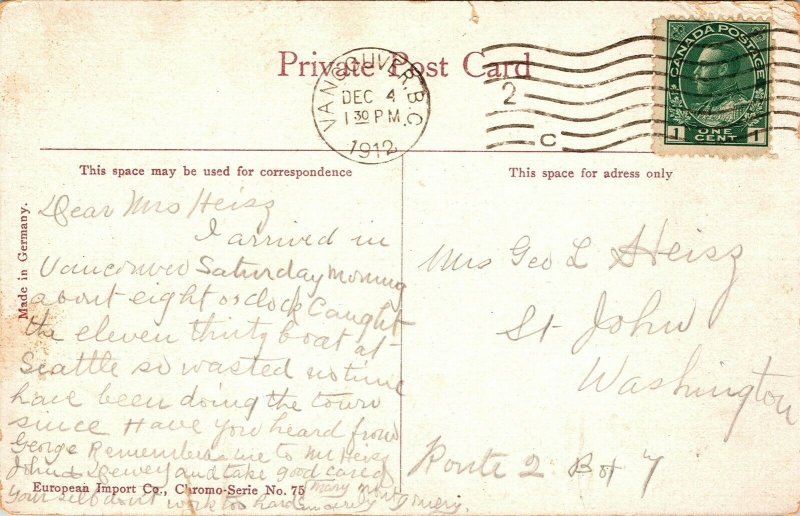 Private Post Card
VANCOUVER, B.C.
DEC 4
1 30 P.M.
1912
2
C
CANADA POSTAGE
1 ONE CENT 1
This space may be used for correspondence
This space for adress only
Made in Germany.
Dear Mrs Heisz
I arrived in
Vancouver Saturday morning
about eight oclock Caught
the eleven thirty boat at
Seattle so wasted no time
have been doing the town
since Have you heard from
George Remember me to Mr Heisz
John & Dewey and take good care of
your self dont work too hard sincerely
Mary Montgomery.
European Import Co., Chromo-Serie No. 75
Mrs Geo L Heisz
St John
Washington
Route 2 Box 7